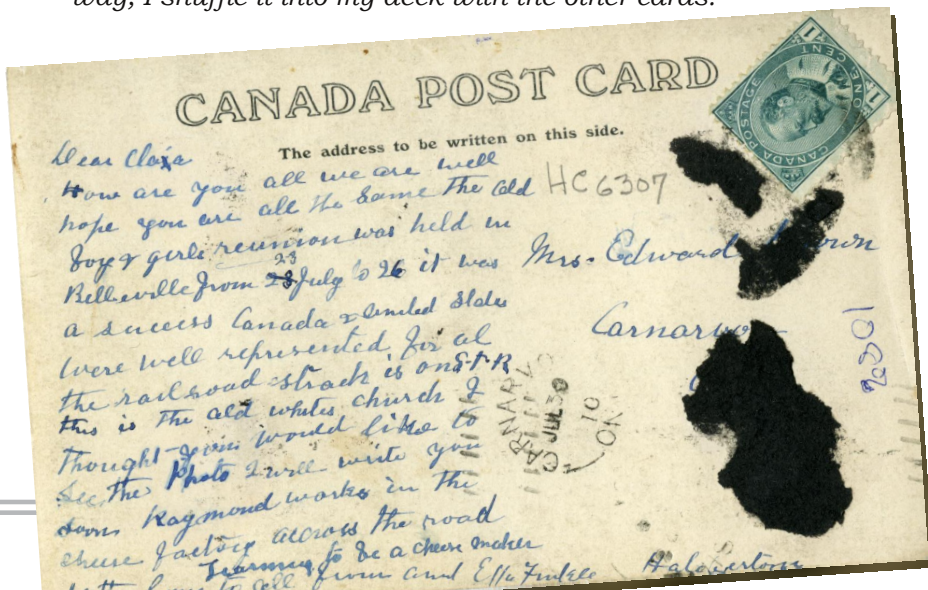 way, I shuffle it into my deck with the other cards.
CANADA POST CARD
The address to be written on this side.
CANADA POSTAGE
ONE CENT
1
1
Dear Clara
How are you all we are well
hope you are all the same the old
HC 6307
boys & girls reunion was held in
Belleville from 23 July to 26 it was
a success Canada & United States
were well represented for al
the railroad strack is on G.T.R
this is the old white church I
thought you would like to
see the Photo I will write you
soon Raymond works in the
cheese factory across the road
learning to be a cheese maker
to tell from and Effa Finkle
Mrs. Edward
Carnarvon
JUL 30
10
ON